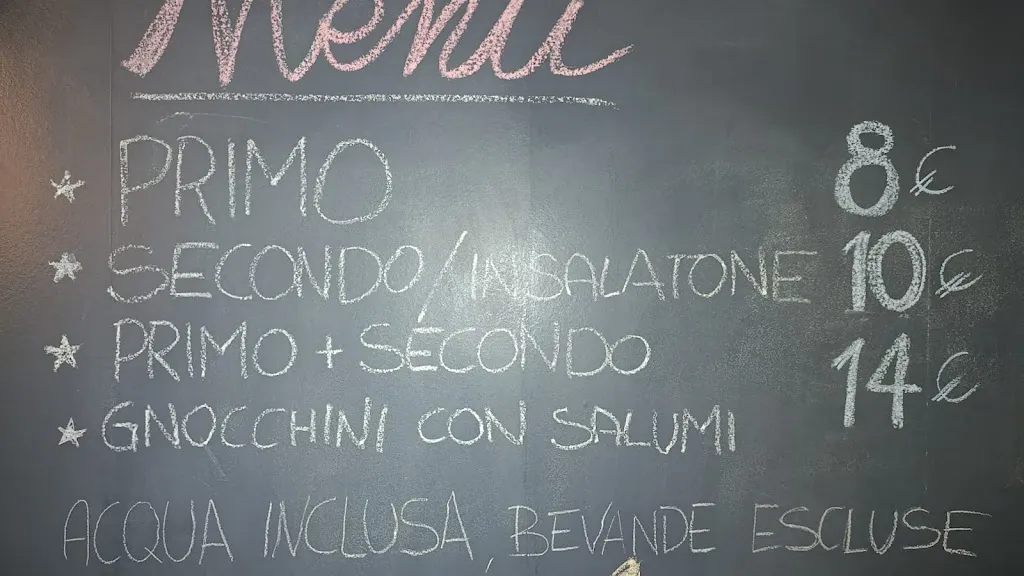 Menu
PRIMO 8€
SECONDO/INSALATONE 10€
PRIMO + SECONDO 14€
GNOCCHINI CON SALUMI
ACQUA INCLUSA, BEVANDE ESCLUSE